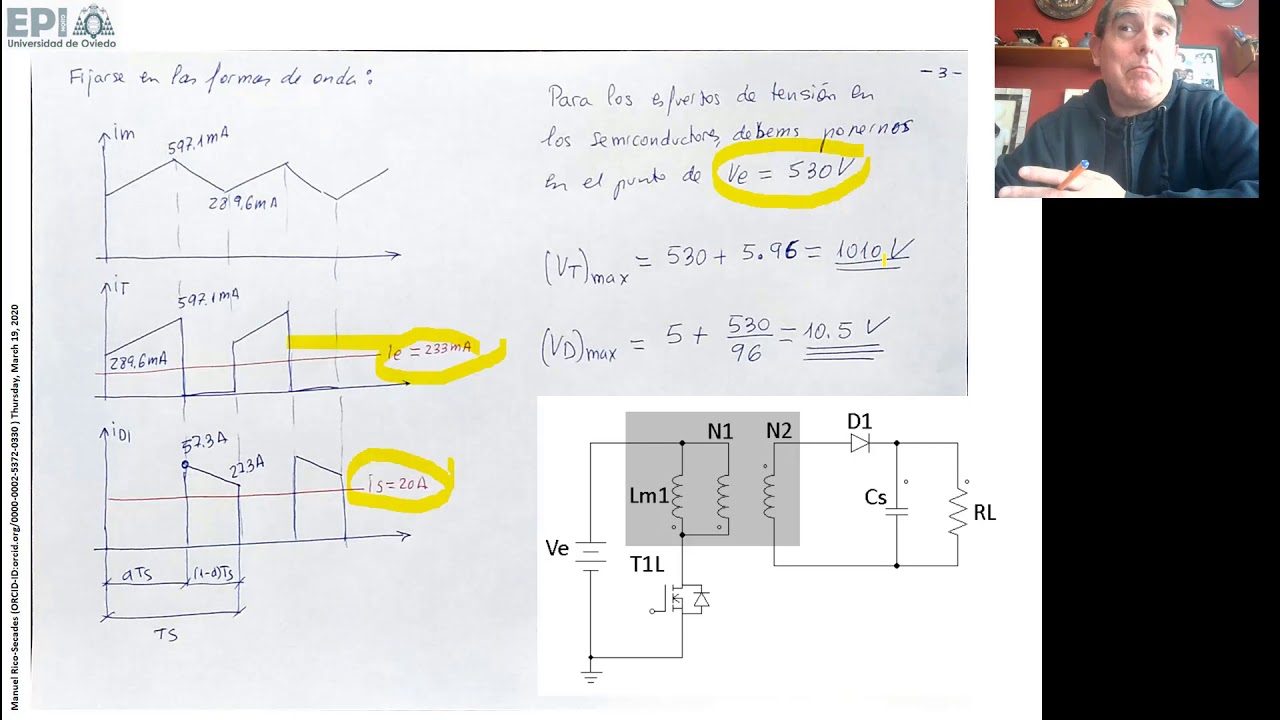 EPI
GIJÓN
Universidad de Oviedo
Manuel Rico-Secades (ORCID-ID:orcid.org/0000-0002-5372-0330 ) Thursday, March 19, 2020
Fijarse en las formas de onda:
im
597.1mA
289,6mA
iT
597.1mA
289.6mA
Ie = 233mA
iD1
57.3A
27.3A
is = 20A
aTs
(1-a)Ts
TS
- 3 -
Para los esfuertos de tensión en
los semiconductores, debems ponernos
en el punto de Ve = 530V
(VT)max = 530 + 5.96 = 1010 V
(VD)max = 5 + 530/96 = 10.5 V
N1
N2
D1
Lm1
Cs
RL
Ve
T1L